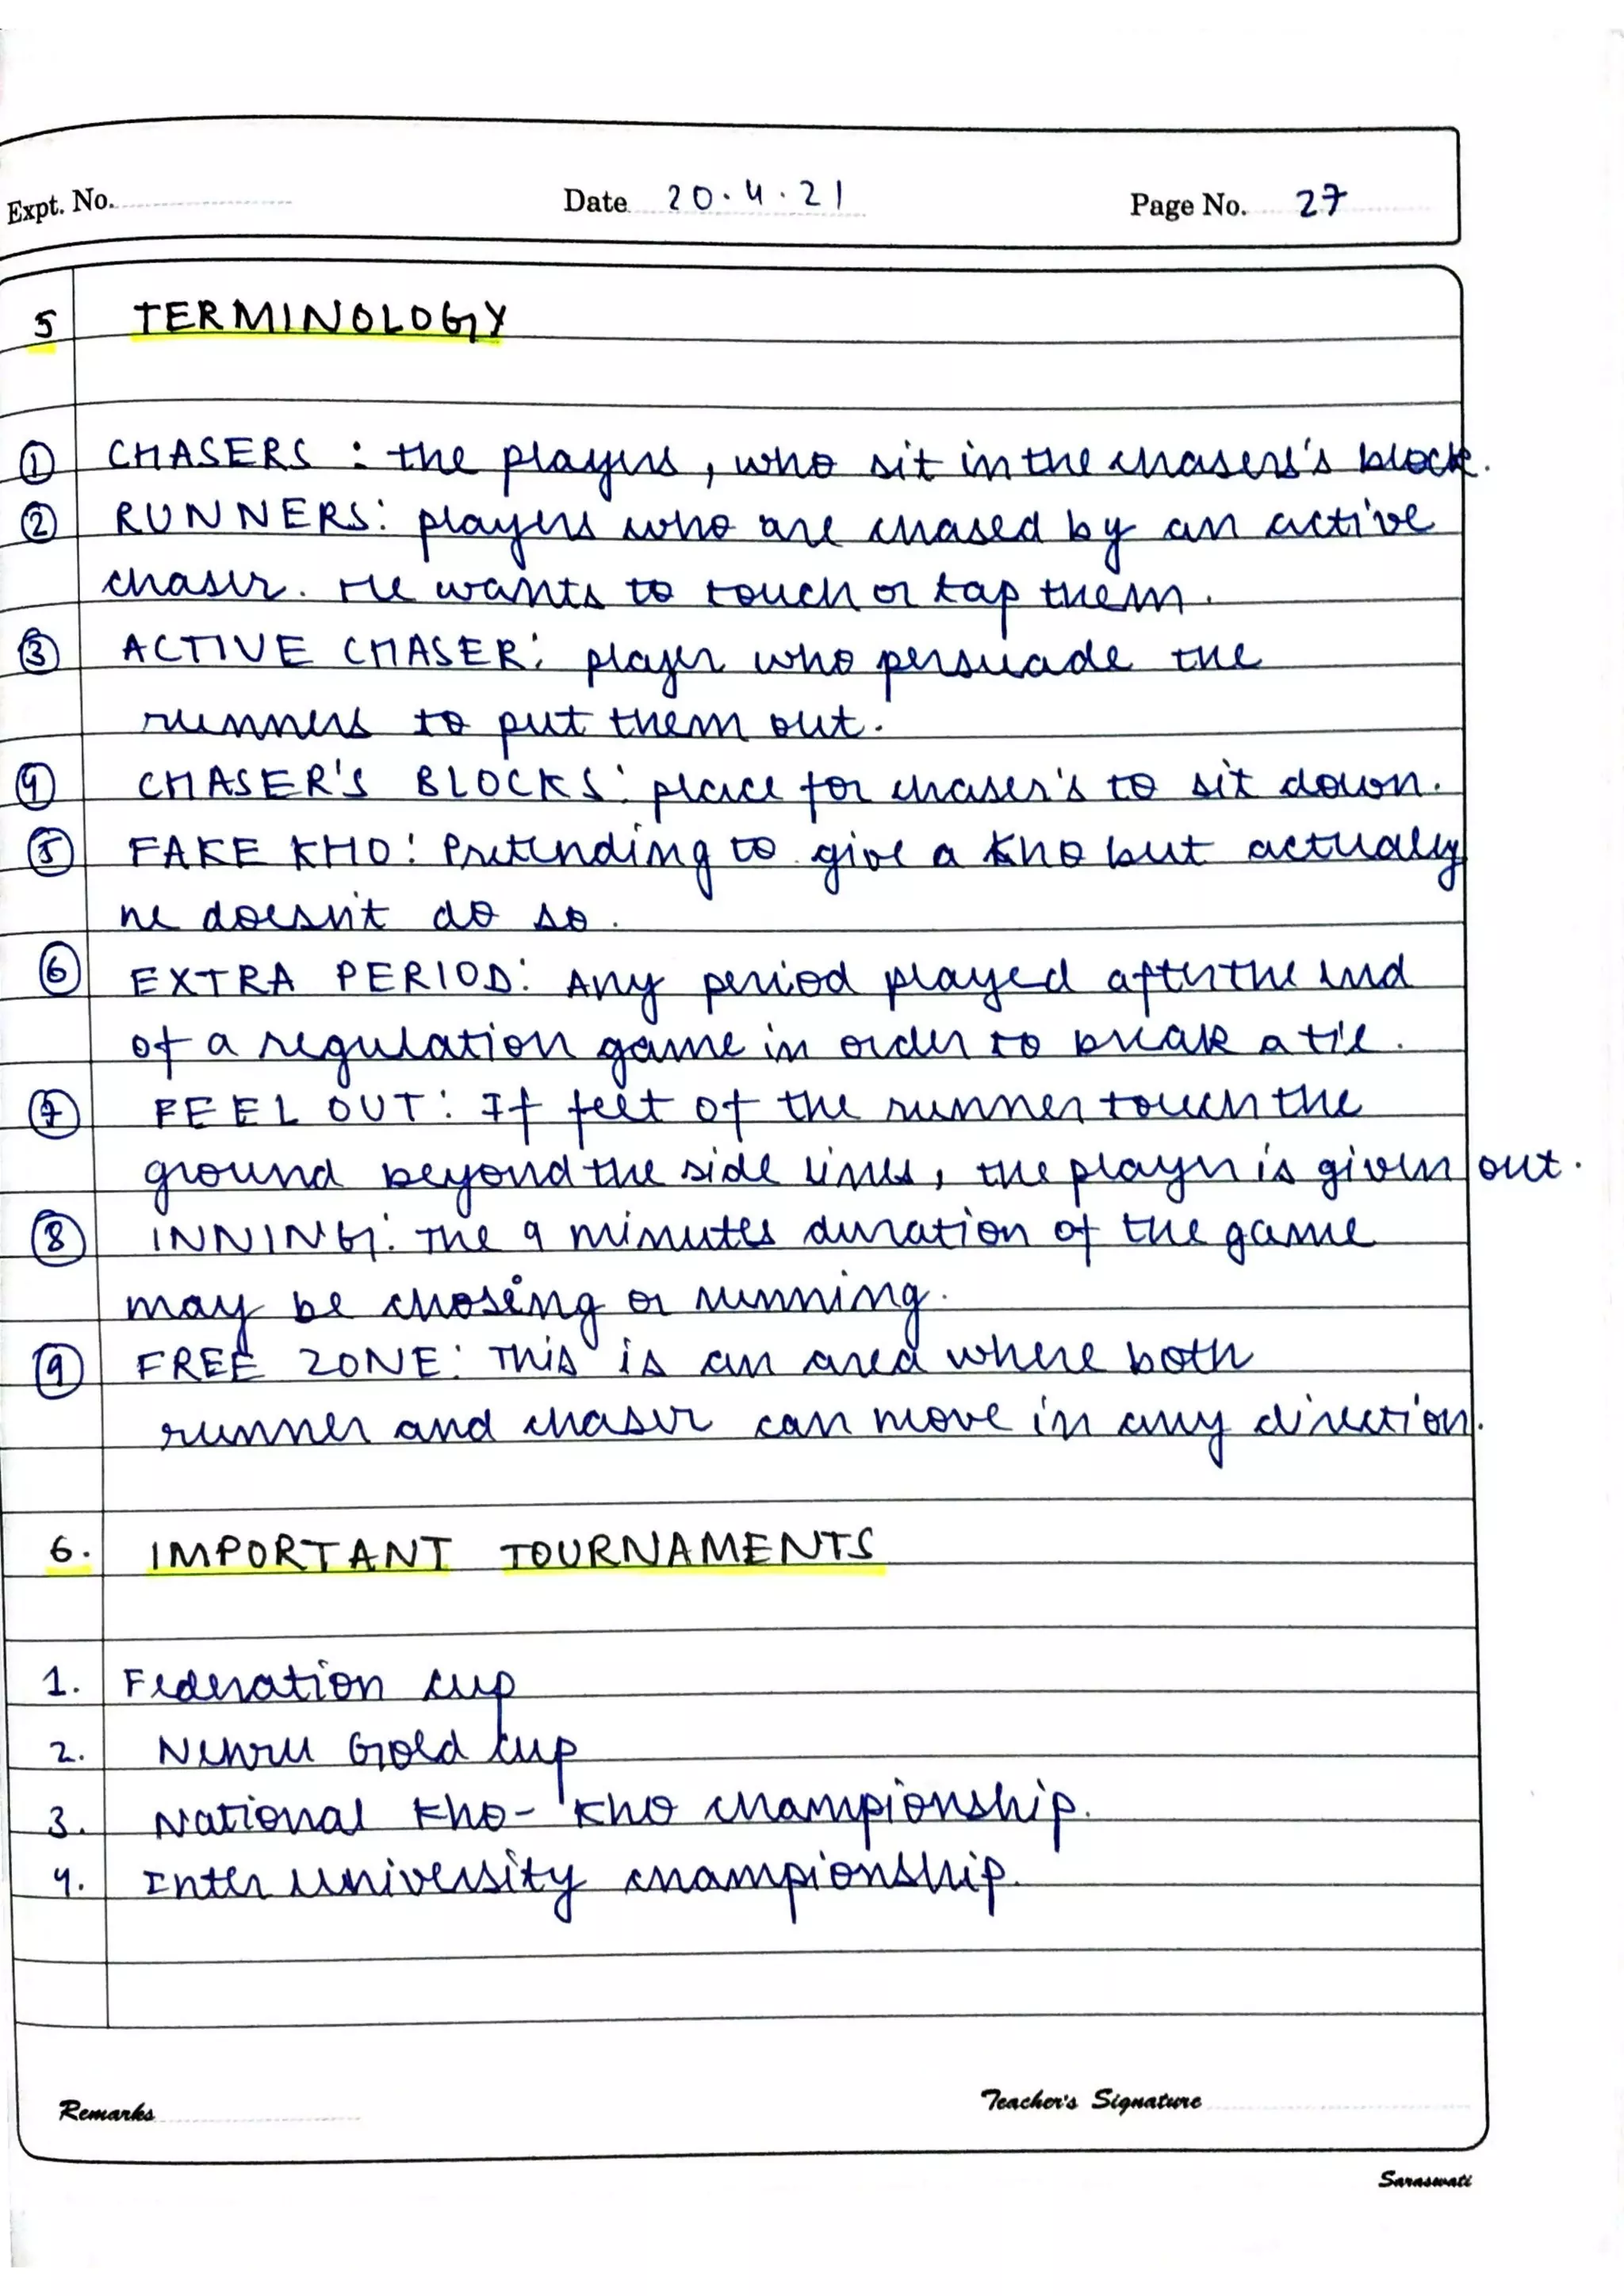 Expt. No. Date 20.4.21 Page No. 27
5 TERMINOLOGY
① CHASERS : the players, who sit in the chasers's block.
② RUNNERS: players who are chased by an active
chaser. He wants to touch or tap them.
③ ACTIVE CHASER: player who persuade the
runners to put them out.
④ CHASER'S BLOCKS: place for chaser's to sit down.
⑤ FAKE KHO: Pretending to give a kho but actually
he doesn't do so.
⑥ EXTRA PERIOD: Any period played after the end
of a regulation game in order to break a tie.
⑦ FEEL OUT: If feet of the runner touch the
ground beyond the side lines, the player is given out.
⑧ INNING: The 9 minutes duration of the game
may be chosing or running.
⑨ FREE ZONE: This is an area where both
runner and chaser can move in any direction.
6. IMPORTANT TOURNAMENTS
1. Federation cup
2. Nehru Gold cup
3. National Kho-Kho championship.
4. Inter university championship.
Remarks Teacher's Signature
Saraswati